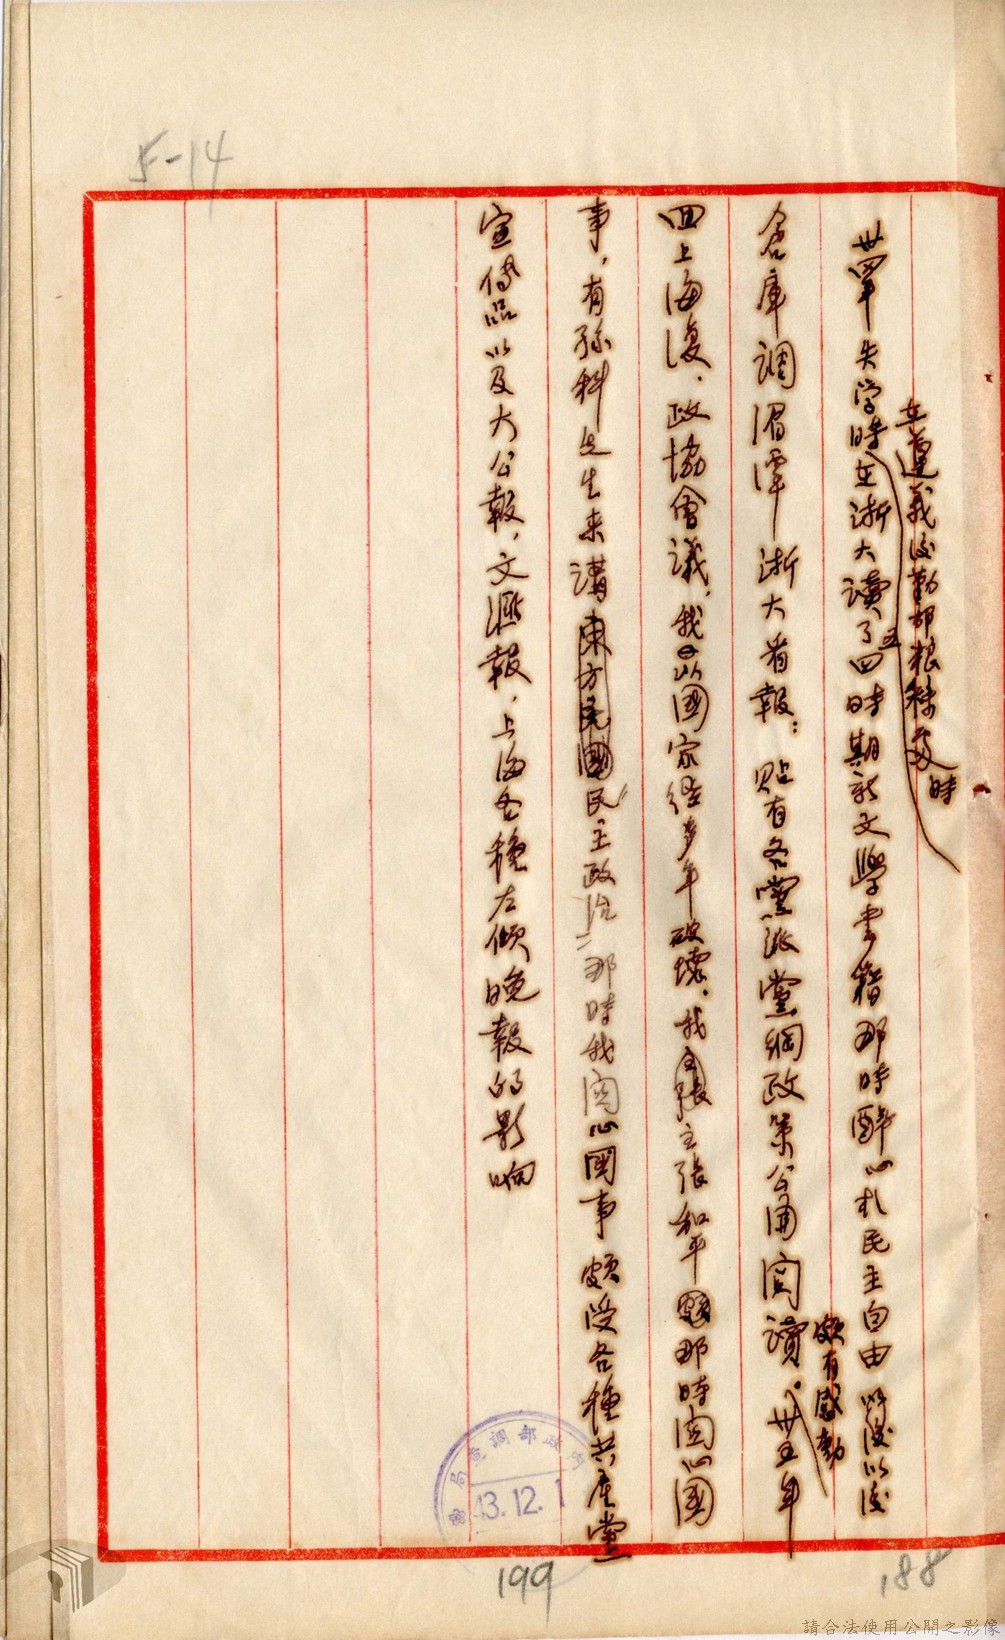 5-14
在遵義後勤部粮秣處時
卅四年失学時在浙大讀了五四時期新文學書籍那時醉心於民主自由以後
頗有感動
倉庫調湄潭浙大看報：貼有各黨派黨綱政策公開閱讀。卅五年
回上海復，政協會議，我以國家經多年破壞，我主張和平那時関心國
事，有孫科先生來講東方民國民主政治"那時我関心國事頗受各種共產黨
宣傳品以及大公報，文滙報，上海各種左傾晚報的影响
內政部調查局
43.12.1
199
188
請合法使用公開之影像